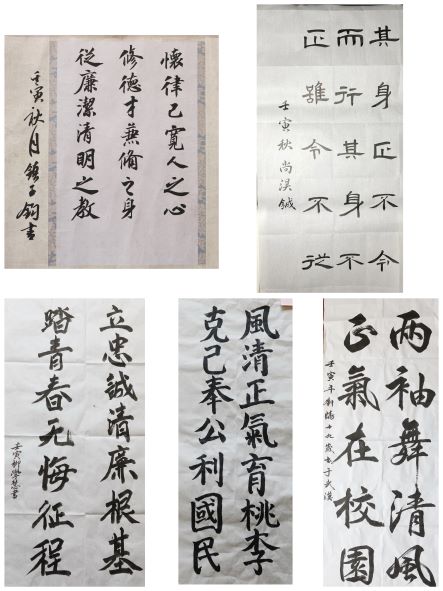 懷律己寬人之心
修德才兼備之身
從廉潔清明之教
壬寅秋月 子鈞書
其身正不令
而行其身不
正雖令不從
壬寅秋 尚淏
立忠誠清廉根基
踏青春无悔征程
壬寅 學慧書
風清正氣育桃李
克己奉公利國民
兩袖舞清風
正氣在校園
壬寅年 十九歲書于武漢